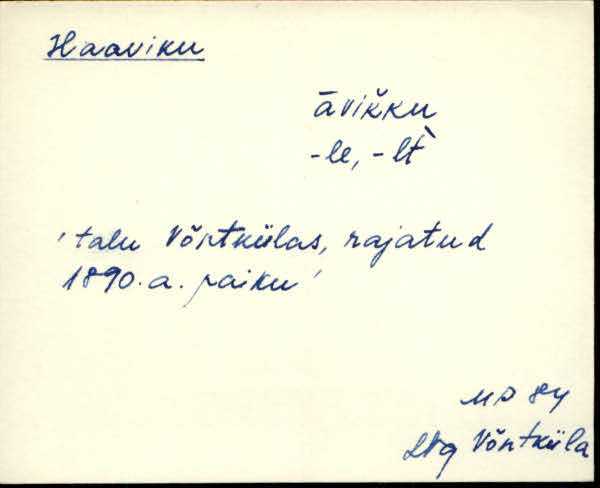 Haaviku
āvikku
-le, -lt̀
'talu Võntkülas, rajatud
1890.a. paiku'
MP 84
Lüg Võntküla